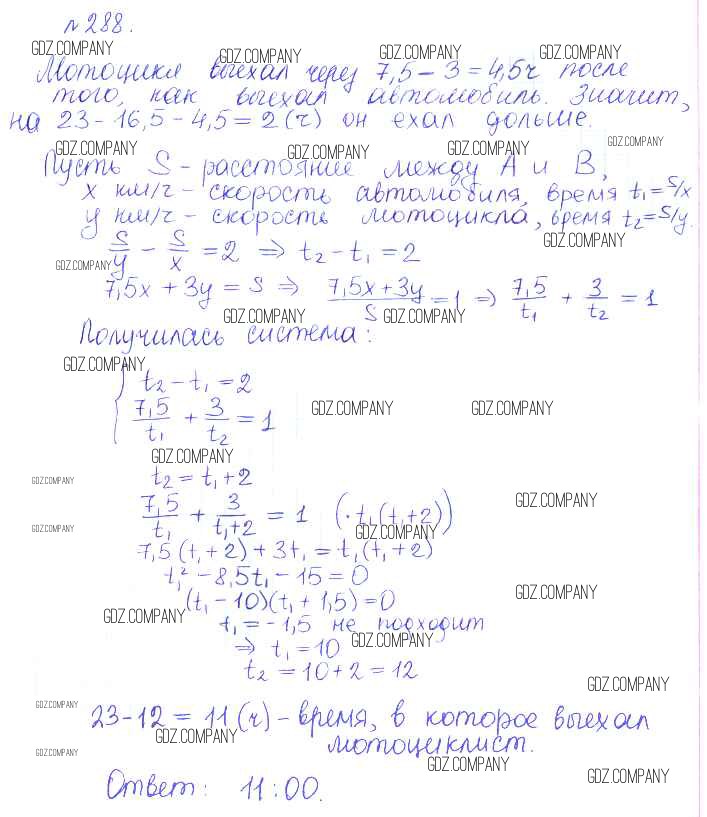 №288.
GDZ.COMPANY GDZ.COMPANY GDZ.COMPANY GDZ.COMPANY
Мотоцикл выехал через 7,5 – 3 = 4,5ч после
того, как выехал автомобиль. Значит,
на 23 – 16,5 – 4,5 = 2 (ч) он ехал дольше.
GDZ.COMPANY GDZ.COMPANY GDZ.COMPANY GDZ.COMPANY
Пусть S – расстояние между А и В,
x км/ч – скорость автомобиля, время t₁ = S/x
y км/ч – скорость мотоцикла, время t₂ = S/y.
GDZ.COMPANY
S/y – S/x = 2 ⇒ t₂ – t₁ = 2
GDZ.COMPANY
7,5x + 3y = S ⇒ (7,5x + 3y)/S = 1 ⇒ 7,5/t₁ + 3/t₂ = 1
GDZ.COMPANY GDZ.COMPANY
Получилась система:
GDZ.COMPANY
{ t₂ – t₁ = 2
7,5/t₁ + 3/t₂ = 1
GDZ.COMPANY GDZ.COMPANY
GDZ.COMPANY
t₂ = t₁ + 2
GDZ.COMPANY
7,5/t₁ + 3/(t₁+2) = 1 (· t₁(t₁+2))
GDZ.COMPANY
GDZ.COMPANY GDZ.COMPANY
7,5(t₁+2) + 3t₁ = t₁(t₁+2)
t₁² – 8,5t₁ – 15 = 0
GDZ.COMPANY
(t₁ – 10)(t₁ + 1,5) = 0
GDZ.COMPANY
t₁ = – 1,5 не подходит
⇒ t₁ = 10
GDZ.COMPANY
t₂ = 10 + 2 = 12
GDZ.COMPANY
GDZ.COMPANY
23 – 12 = 11 (ч) – время, в которое выехал
GDZ.COMPANY
мотоциклист.
GDZ.COMPANY
GDZ.COMPANY
GDZ.COMPANY
Ответ: 11:00.